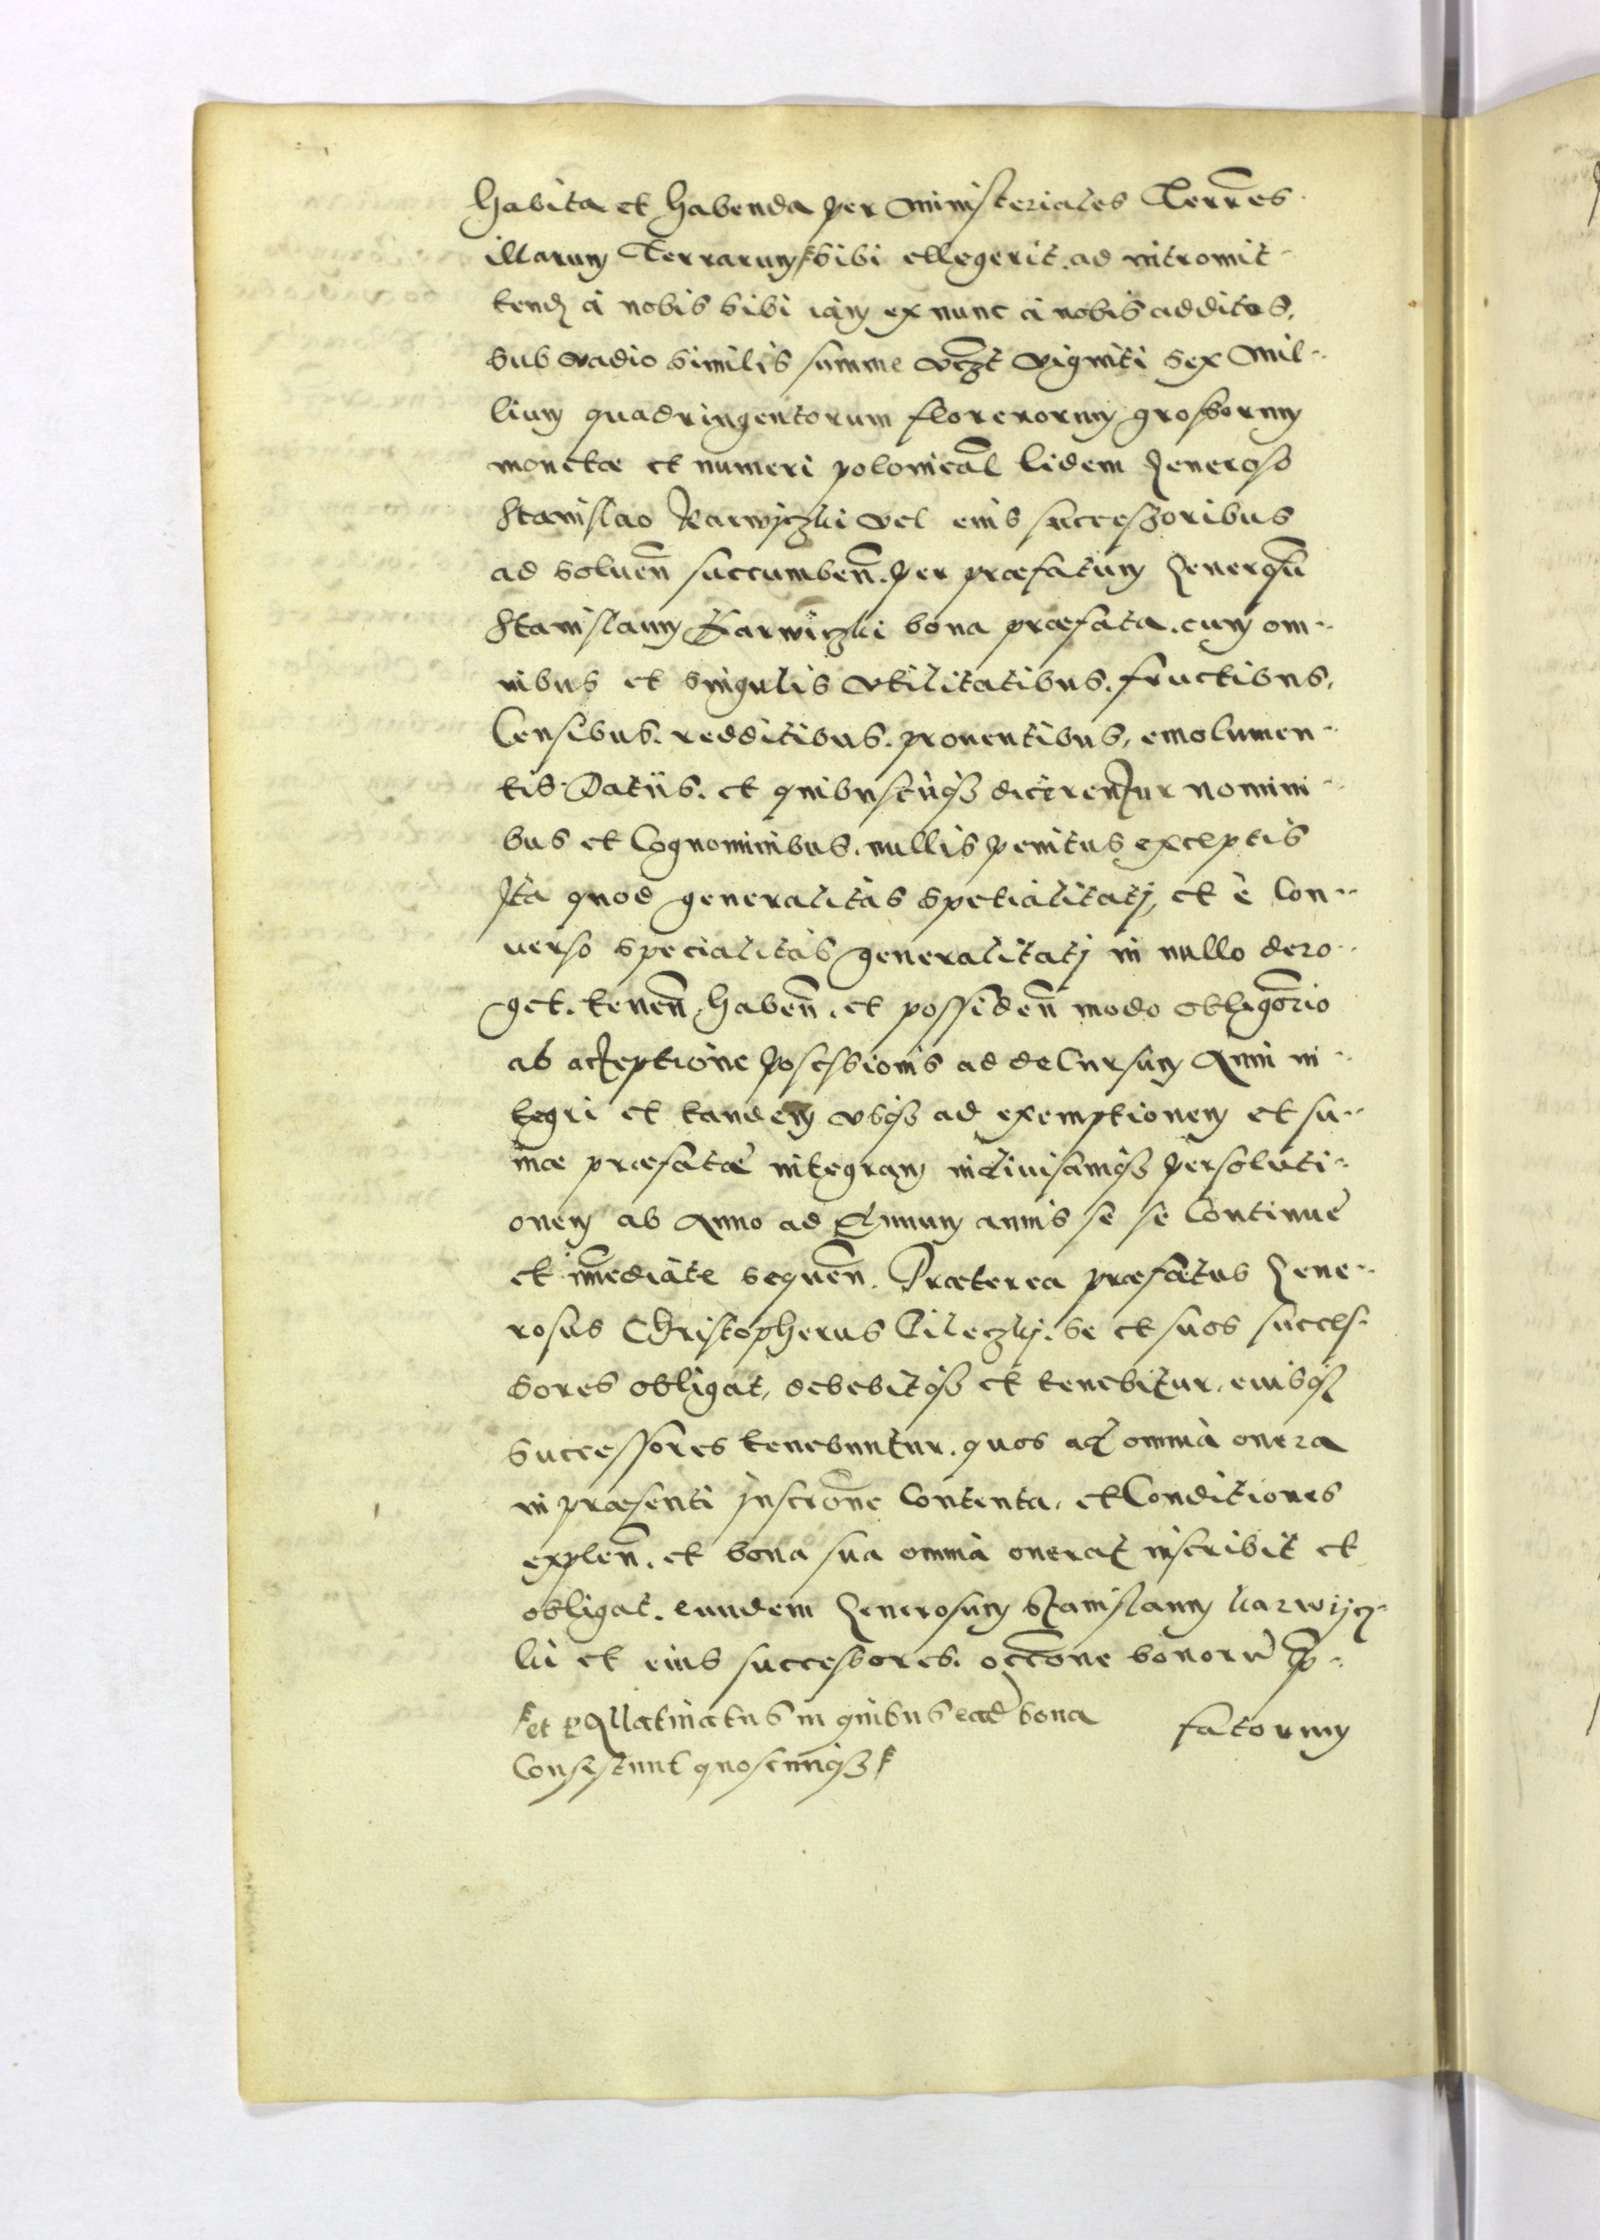 habita et habenda per Ministeriales Terrēs
illarum Terrarum sibi ellegerit. ad intromit-
tend à nobis sibi iam ex nunc à nobis additos.
sub vadio similis summe vtzt viginti sex Mil-
lium quadringentorum florenorum grossorum
monetæ et numeri polonicāl Eidem Generoso
Stanislao Karwiczki vel eius successoribus
ad soluen̄ succumben̄. per præfatum Generosū
Stanislaum Karwiczki bona præfata. cum om-
nibus et singulis vtilitatibus. fructibus,
Censibus. redditibus. prouentibus, emolumen-
tis Datiis. et quibuscūq3 dicerentur nomini-
bus et Cognominibus. nullis penitus exceptis
Ita quod generalitas spetialitatj, et è Con-
uerso specialitas generalitatj in nullo dero-
get. tenen̄ haben̄. et possiden̄ modo obligōrio
ab acceptione possessionis ad decursum Anni in-
tegri et tandem vsq3 ad exemptionem et su-
māe præfatæ integram indiuisamq3 persoluti-
onem ab Anno ad Annum annis se se Continuè
et īmediatè sequen̄. Præterea præfatus Gene-
rosus Christopherus Pileczkj. se et suos succes-
sores obligat, debebitq3 et tenebitur, eiusq3
successores tenebuntur. quos ad omnia onera
in præsenti Inscrōne Contenta, et Conditiones
explen̄. et bona sua omnia onerat inscribit et
obligat. eundem Generosum Stanislaum Karwijcz-
ki et eius successores. occōne bonorū p̄-
et Pallatinatus in quibus eād bona
Consistunt quoscunq3
fatorum